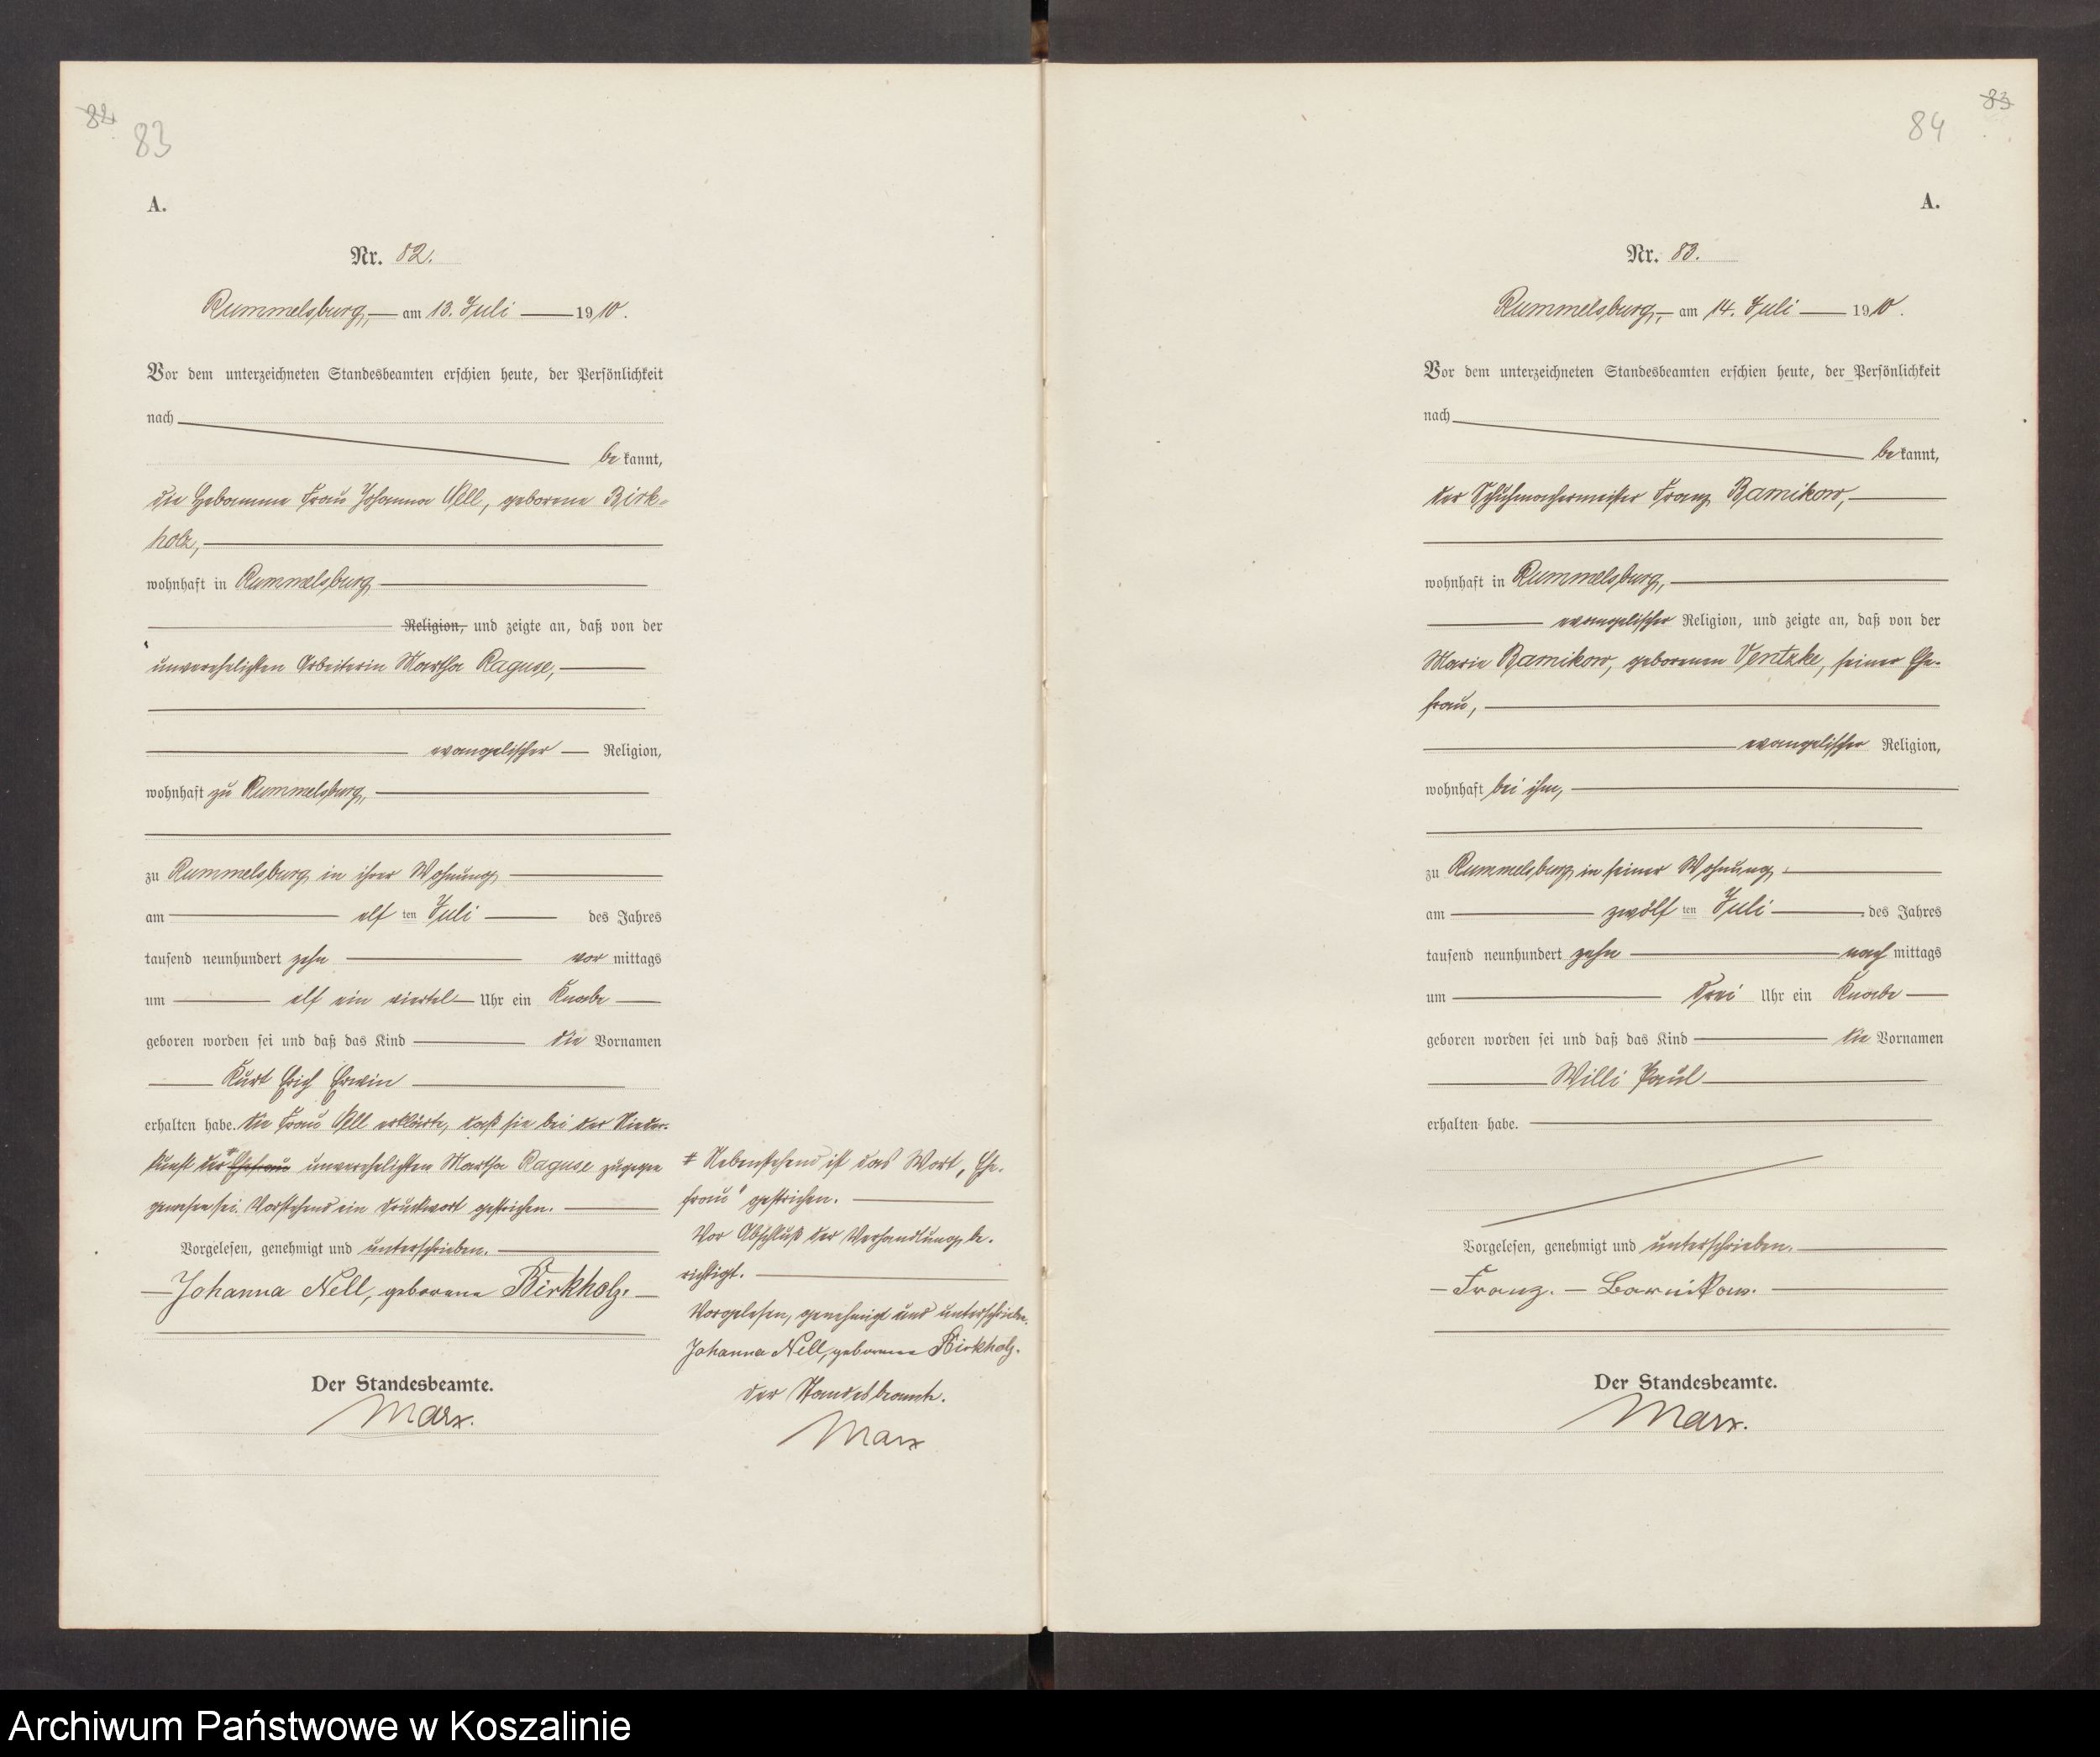 82
83
A.
Nr. 82.
Rummelsburg, am 13. Juli 1910.
Vor dem unterzeichneten Standesbeamten erschien heute, der Persönlichkeit
nach
bekannt,
die Hebamme Frau Johanna Nell, geborene Birk-
holz,
wohnhaft in Rummelsburg
Religion, und zeigte an, daß von der
unverehelichten Arbeiterin Martha Raguse,
evangelischer Religion,
wohnhaft zu Rummelsburg,
zu Rummelsburg in ihrer Wohnung
am elf ten Juli des Jahres
tausend neunhundert zehn vor mittags
um elf ein viertel Uhr ein Knabe
geboren worden sei und daß das Kind die Vornamen
Kurt Erich Erwin
erhalten habe. Die Frau Nell erklärte, daß sie bei der Nieder-
kunft der Ehefrau unverehelichten Martha Raguse zugegen
gewesen sei. Vorstehend ein Druckwort gestrichen.
Vorgelesen, genehmigt und unterschrieben.
Johanna Nell, geborene Birkholz.
Der Standesbeamte.
Marx.
# Nebenstehend ist das Wort „Ehe-
frau" gestrichen.
Vor Abschluß der Verhandlung be-
richtigt.
Vorgelesen, genehmigt und unterschrieben.
Johanna Nell, geborene Birkholz.
Der Standesbeamte.
Marx
83
84
A.
Nr. 83.
Rummelsburg, am 14. Juli 1910.
Vor dem unterzeichneten Standesbeamten erschien heute, der Persönlichkeit
nach
bekannt,
der Schuhmachermeister Franz Barnikow,
wohnhaft in Rummelsburg,
evangelischer Religion, und zeigte an, daß von der
Marie Barnikow, geborenen Ventzke, seiner Ehe-
frau,
evangelischer Religion,
wohnhaft bei ihm,
zu Rummelsburg in seiner Wohnung
am zwölf ten Juli des Jahres
tausend neunhundert zehn nach mittags
um drei Uhr ein Knabe
geboren worden sei und daß das Kind die Vornamen
Willi Paul
erhalten habe.
Vorgelesen, genehmigt und unterschrieben.
Franz. Barnikow.
Der Standesbeamte.
Marx.
Archiwum Państwowe w Koszalinie